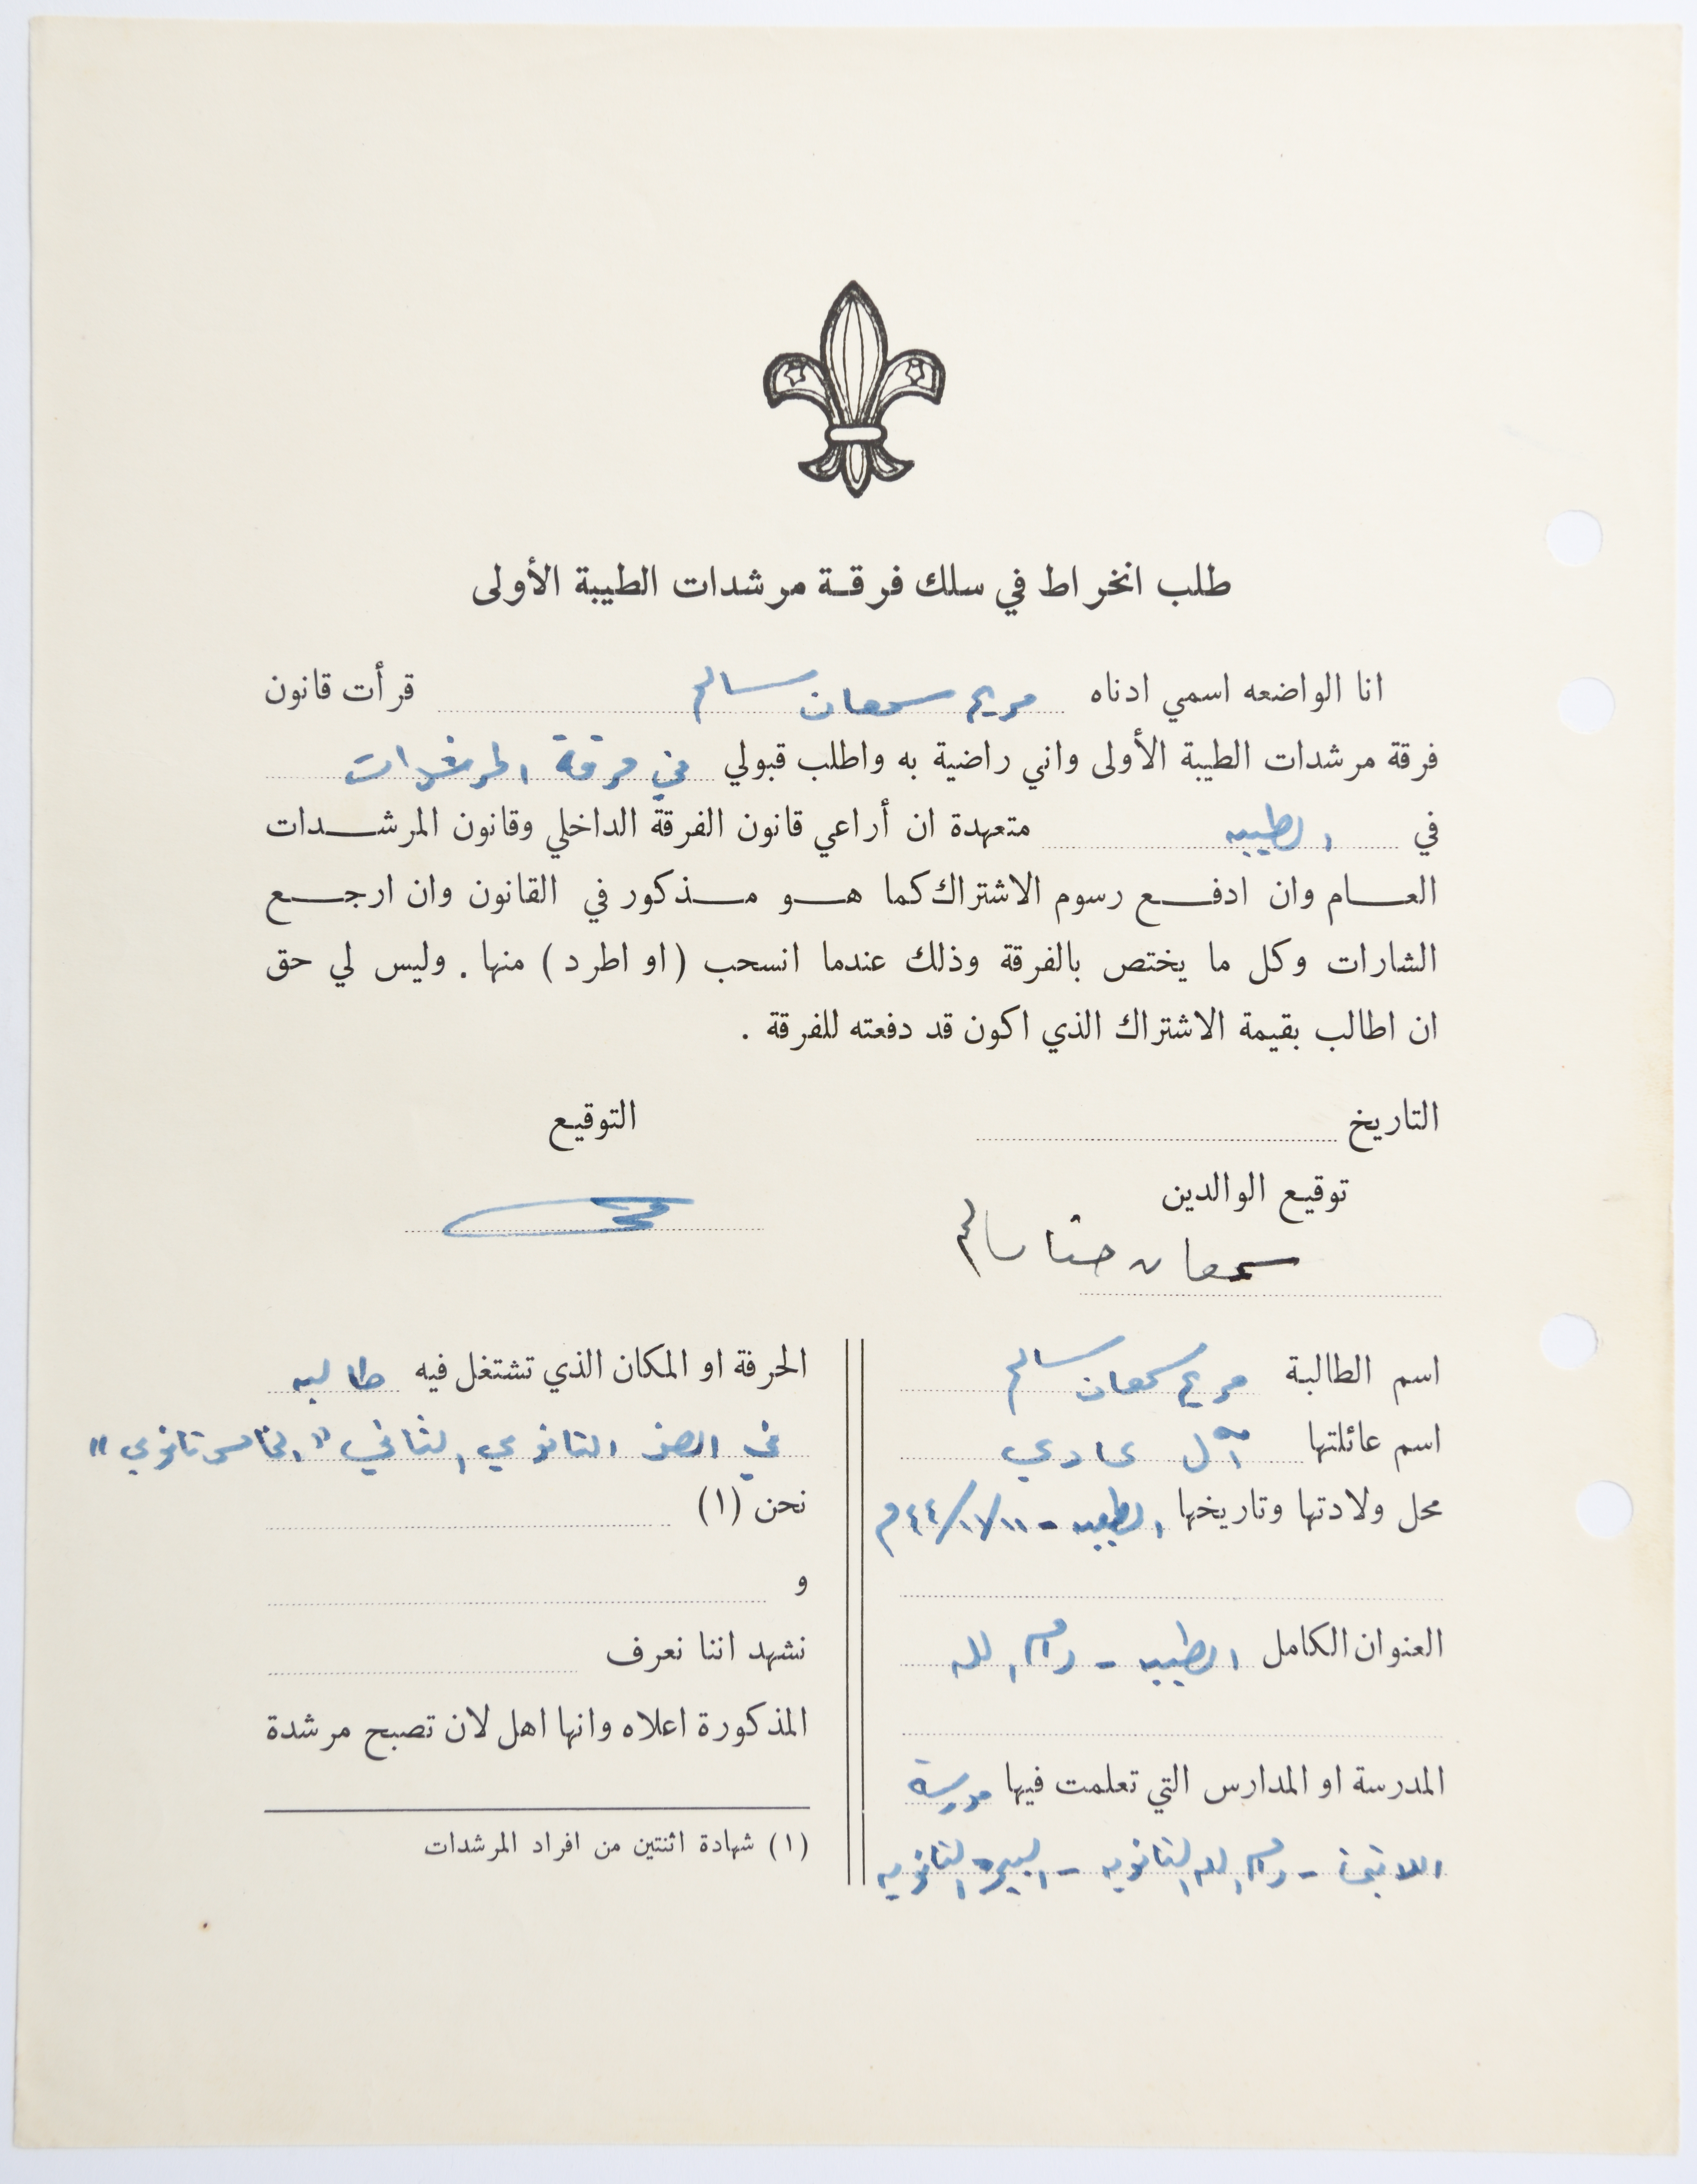 طلب انخراط في سلك فرقة مرشدات الطيبة الأولى
انا الواضعه اسمي ادناه مريم سمعان سالم قرأت قانون
فرقة مرشدات الطيبة الأولى واني راضية به واطلب قبولي في فرقة المرشدات
في الطيبه متعهدة ان أراعي قانون الفرقة الداخلي وقانون المرشدات
العام وان ادفع رسوم الاشتراك كما هو مذكور في القانون وان ارجع
الشارات وكل ما يختص بالفرقة وذلك عندما انسحب (او اطرد) منها . وليس لي حق
ان اطالب بقيمة الاشتراك الذي اكون قد دفعته للفرقة .
التاريخ
التوقيع
توقيع الوالدين
سمعان حنا سالم
اسم الطالبة مريم سمعان سالم
اسم عائلتها آل عادي
محل ولادتها وتاريخها الطيبه -
العنوان الكامل الطيبه - رام الله
المدرسة او المدارس التي تعلمت فيها مدرسة
اللاتين - رام الله الثانويه - البيره الثانويه
الحرفة او المكان الذي تشتغل فيه طالبه
في الصف الثانوي الثاني "الخامس ثانوي"
نحن (١)
و
نشهد اننا نعرف
المذكورة اعلاه وانها اهل لان تصبح مرشدة
(١) شهادة اثنتين من افراد المرشدات